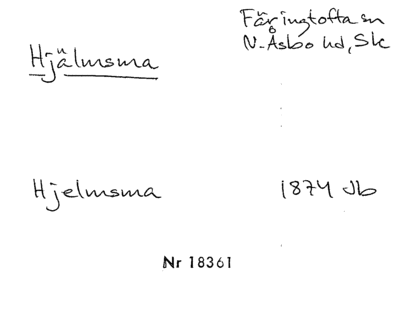 Färingtofta sn
Hjälmsma
N. Åsbo hd, Sk
Hjelmsma 1874 Jb
Nr 18361